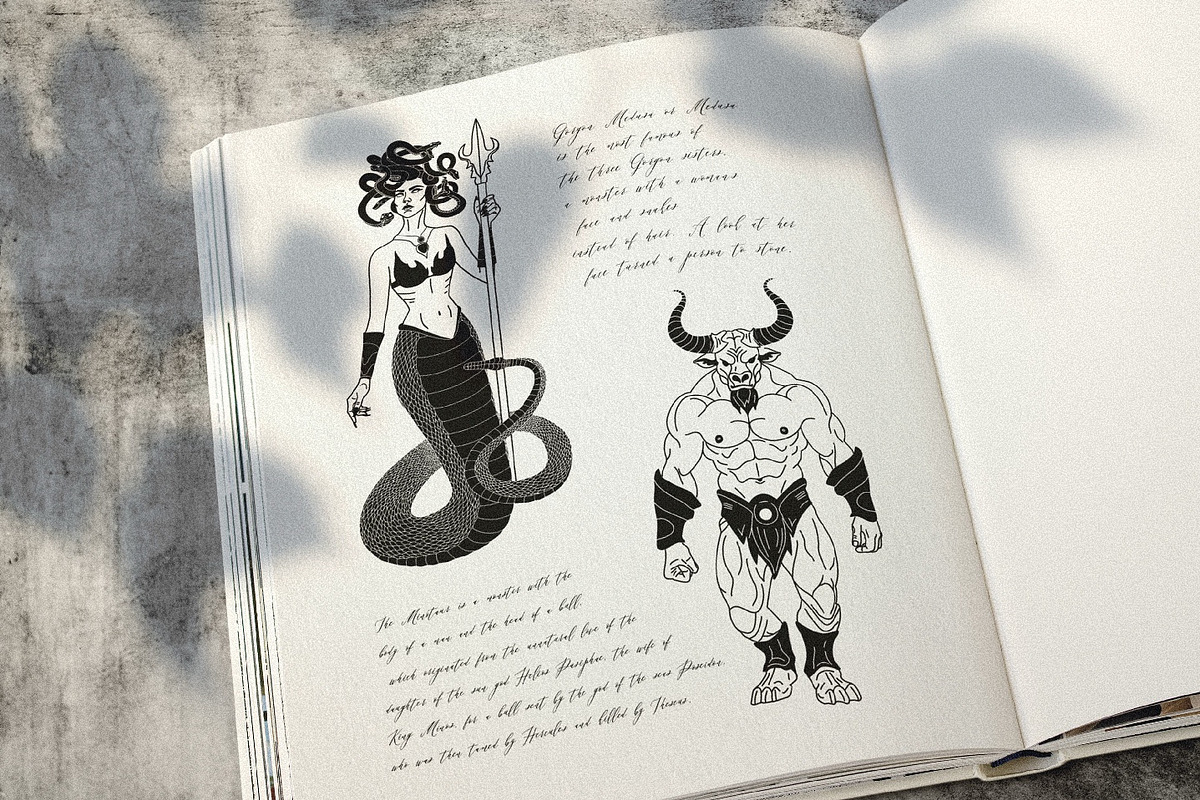 Gorgon Medusa or Medusa
is the most famous of
the three Gorgon sisters,
a monster with a womans
face and snakes
instead of hair. A look at her
face turned a person to stone.
The Minotaur is a monster with the
body of a man and the head of a bull,
which originated from the unnatural love of the
daughter of the sun god Helios Pasephae, the wife of
King Minos, for a bull sent by the god of the seas Poseidon,
who was then tamed by Hercules and killed by Theseus.